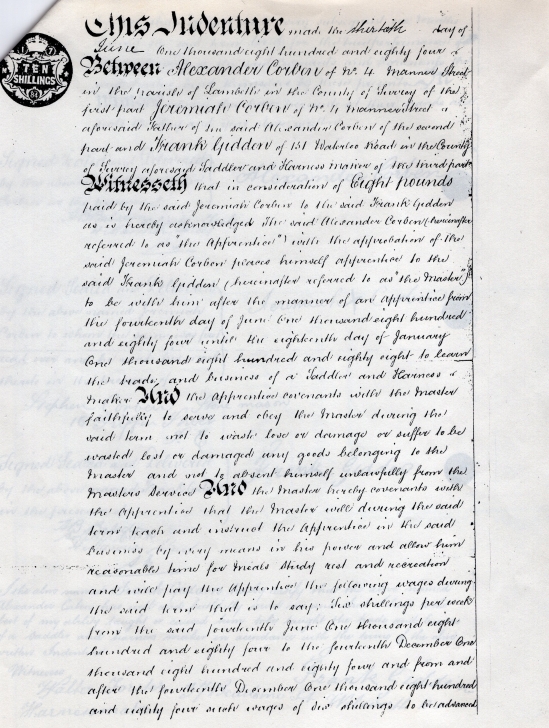 This Indenture made the thirtieth day of
June One thousand eight hundred and eighty four
TEN
SHILLINGS
84
Between Alexander Corben of No. 4 Manner Street
in the parish of Lambeth in the County of Surrey of the
first part Jeremiah Corben of No. 4 Manner Street
aforesaid Father of the said Alexander Corben of the second
part and Frank Gidden of 151 Waterloo Road in the County
of Surrey aforesaid Saddler and Harness Maker of the third part
Witnesseth that in consideration of Eight pounds
paid by the said Jeremiah Corben to the said Frank Gidden
as is hereby acknowledged The said Alexander Corben (hereinafter
referred to as "the Apprentice") with the approbation of the
said Jeremiah Corben places himself apprentice to the
said Frank Gidden (hereinafter referred to as "the Master")
to be with him after the manner of an Apprentice from
the fourteenth day of June One thousand eight hundred
and eighty four until the eighteenth day of January
One thousand eight hundred and eighty eight to learn
the trade and business of a Saddler and Harness
maker And the Apprentice covenants with the Master
faithfully to serve and obey the Master during the
said term not to waste lose or damage or suffer to be
wasted lost or damaged any goods belonging to the
Master and not to absent himself unlawfully from the
Masters Service And the Master hereby covenants with
the Apprentice that the Master will during the said
term teach and instruct the Apprentice in the said
business by every means in his power and allow him
reasonable time for meals study rest and recreation
and will pay the Apprentice the following wages during
the said term that is to say: Six shillings per week
from the said fourteenth June One thousand eight
hundred and eighty four to the fourteenth December One
thousand eight hundred and eighty four and from and
after the fourteenth December One thousand eight hundred
and eighty four such wages of six shillings to be advanced